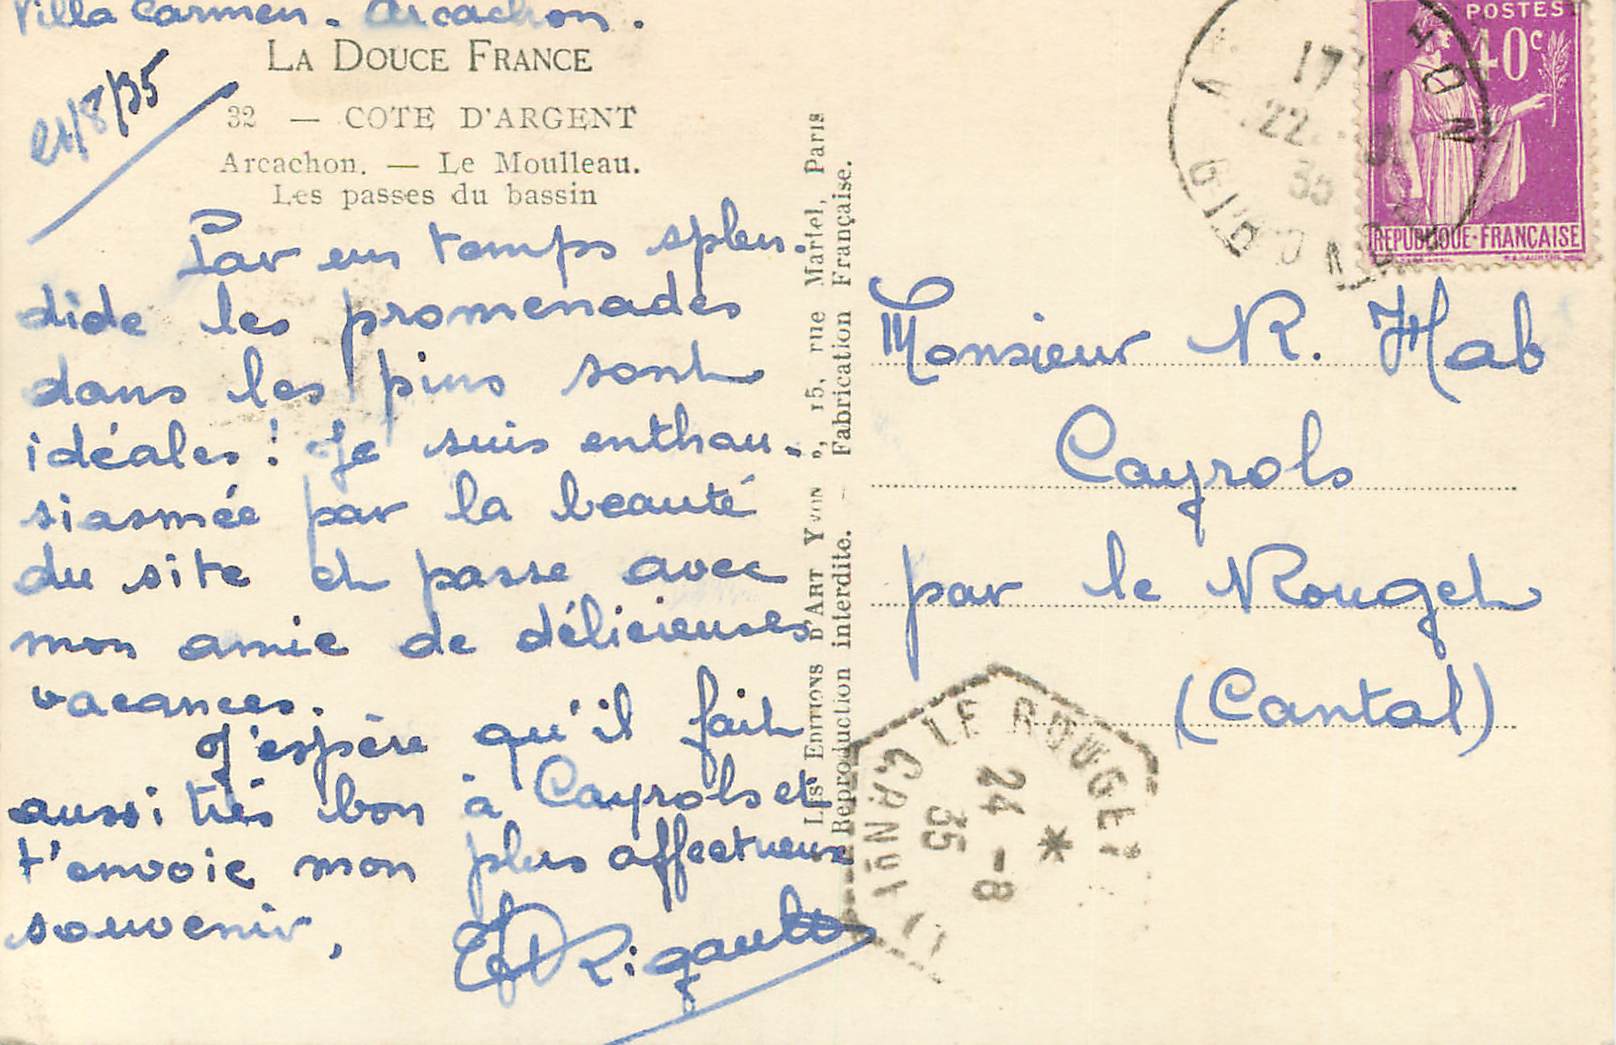 Villa Carmen. Arcachon.
LA DOUCE FRANCE
21/8/35
32 — COTE D'ARGENT
Arcachon. — Le Moulleau.
Les passes du bassin
Par un temps splen-
dide les promenades
dans les pins sont
idéales! Je suis enthou-
siasmée par la beauté
du site et passe avec
mon amie de délicieuses
vacances.
J'espère qu'il fait
aussi très bon à Cayrols et
t'envoie mon plus affectueux
souvenir,
Rigault
LES EDITIONS D'ART YVON, 15, rue Martel, Paris
Reproduction interdite. — Fabrication Française.
POSTES
40c
REPUBLIQUE-FRANÇAISE
17
22
35
GIRONDE
Monsieur R. Hab
Cayrols
par le Rouget
(Cantal)
LE ROUGET
24 -8
35
CANTAL